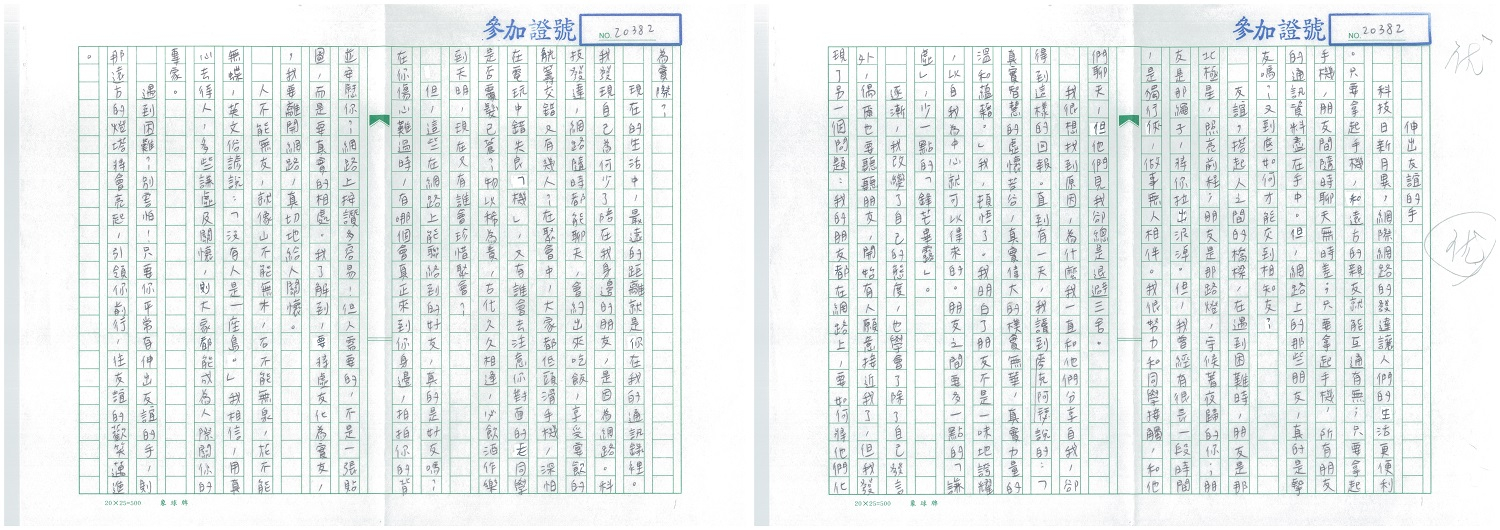 參加證號
NO. 20382
优
优
伸出友誼的手
科技日新月異，網際網路的發達讓人們的生活更便利
。只要拿起手機，和遠方的親友就能互通有無；只要拿起
手機，朋友間隨時聊天無時差；只要拿起手機，所有朋友
的通訊資料盡在手中。但，網路上的那些朋友，真的是摯
友嗎？又到底如何才能交到相知友？
友誼，搭起人之間的橋樑，在遇到困難時，朋友是那
北極星，照亮前程；朋友是那路燈，守候著夜歸的你；朋
友是那繩子，將你拉出泥淖。但，我曾經有很長一段時間
，是獨行俠，做事無人相伴。我很努力和同學接觸，和他
們聊天，但他們見我卻總是退避三舍。
我很想找到原因，為什麼我一直和他們分享自我，卻
得到這樣的回報。直到有一天，我讀到麥克阿瑟說的：「
真實智慧的虛懷若谷，真實偉大的樸實無華，真實力量的
溫和蘊藉。」我，頓悟了。我明白了朋友不是一味地誇耀
，以自我為中心就可以得來的。朋友之間要多一點的「謙
虛」，少一點的「鋒芒畢露」。
逐漸，我改變了自己的態度，也學會了除了自己發言
外，偶爾也要聽聽朋友，開始有人願意接近我了，但我發
現了另一個問題：我的朋友都在網路上，要如何將他們化
參加證號
NO. 20382
為實際？
現在的生活中，最遠的距離就是你在我的通訊錄裡。
我發現自己為何少了陪在我身邊的朋友，是因為網路。科
技發達，網路隨時都能聊天，會約出來吃飯，享受宴飲的
觥籌交錯又有幾人？在聚會中，大家都低頭滑手機，深怕
在電玩中錯失良「機」，又有誰會去注意你對面的老同學
是否靈髮已蒼？物以稀為貴，古代久久相逢，必飲酒作樂
到天明，現在又有誰會珍惜聚會？
但，這些在網路上能聯絡到的好友，真的是好友嗎？
在你傷心難過時，有哪個會真正來到你身邊，拍拍你的背
並安慰你？網路上按讚多容易，但人需要的，不是一張貼
圖，而是要真實的相處。我了解到，要將虛友化為實友，
，我要離開網路，真切地給人關懷。
人不能無友，就像山不能無木，石不能無泉，花不能
無蝶，英文俗諺說：「沒有人是一座島。」我相信，用真
心去待人，多些謙虛及關懷，則大家都能成為人際關係的
專家。
遇到困難？別害怕！只要你平常有伸出友誼的手，則
那遠方的燈塔將會亮起，引領你前行，往友誼的歡笑邁進
。
20×25=500 象球牌
20×25=500 象球牌